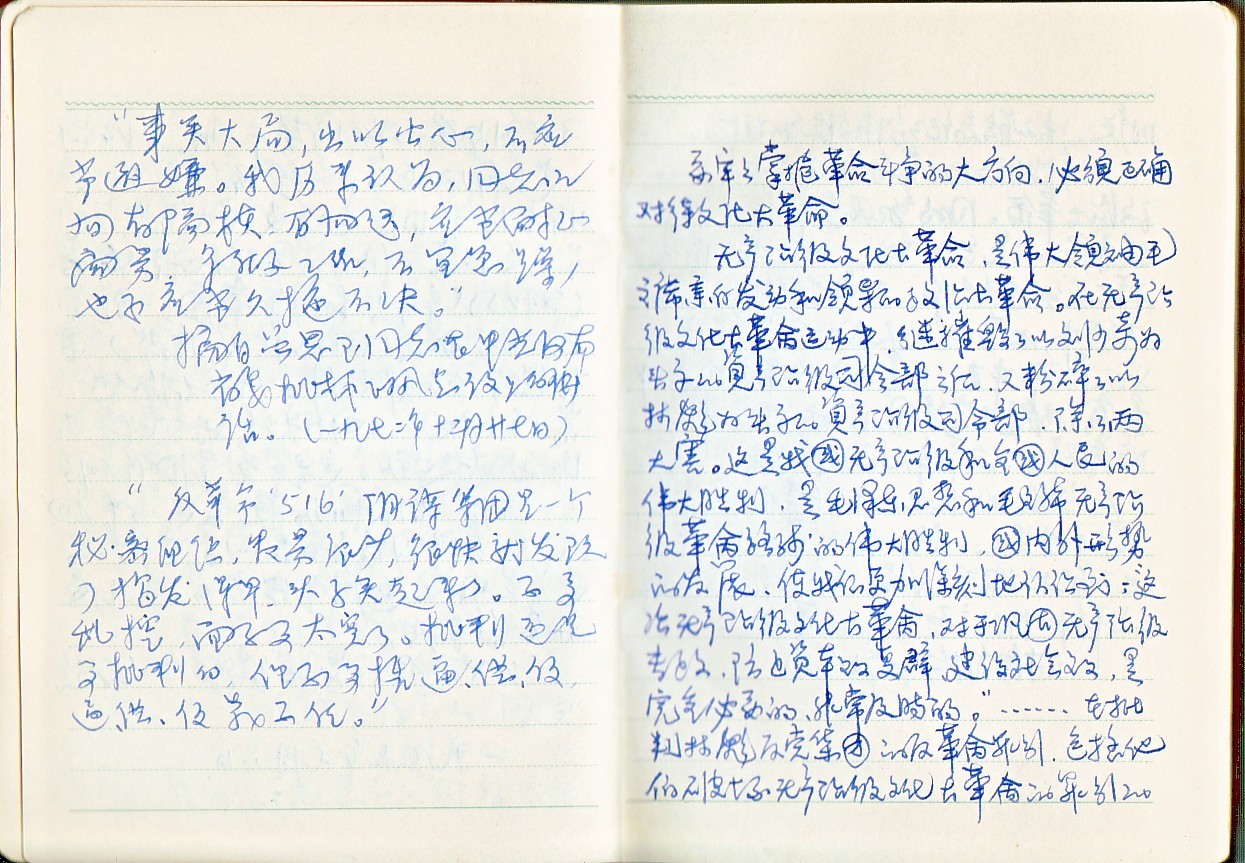 "事关大局，出以公心，不应
当避嫌。我历来认为，同志之
间有隔
也不应当久拖不决。"
摘自
话。（一九七二年十二月廿七日）
"反革命'516'阴谋集团是一个
秘密组织，人员很少，很快就发现
了揭发 头子关起来了。不要
乱挖，面不要太宽了。批判还是
要批判的，但不要搞逼、供、信，
逼、供、信靠不住。"
要牢牢掌握革命斗争的大方向，必须正确
对待文化大革命。
无产阶级文化大革命，是伟大领袖毛
主席亲自发动和领导的文化大革命。在无产阶
级文化大革命运动中，继摧毁了以刘少奇为
头子的資产阶级司令部之后，又粉碎了以
林彪为头子的資产阶级司令部，除了两
大害。这是我國无产阶级和全國人民的
伟大胜利，是毛泽东思想和毛主席无产阶
级革命路线的伟大胜利，國内外形势
的发展，使我们更加深刻地认识到：这
次无产阶级文化大革命，对于巩固无产阶级
专政，防止资本主义复辟，建设社会主义，是
完全必要的，非常及時的。"……在批
判林彪反党集团的反革命罪行，包括他
们破坏无产阶级文化大革命的罪行的